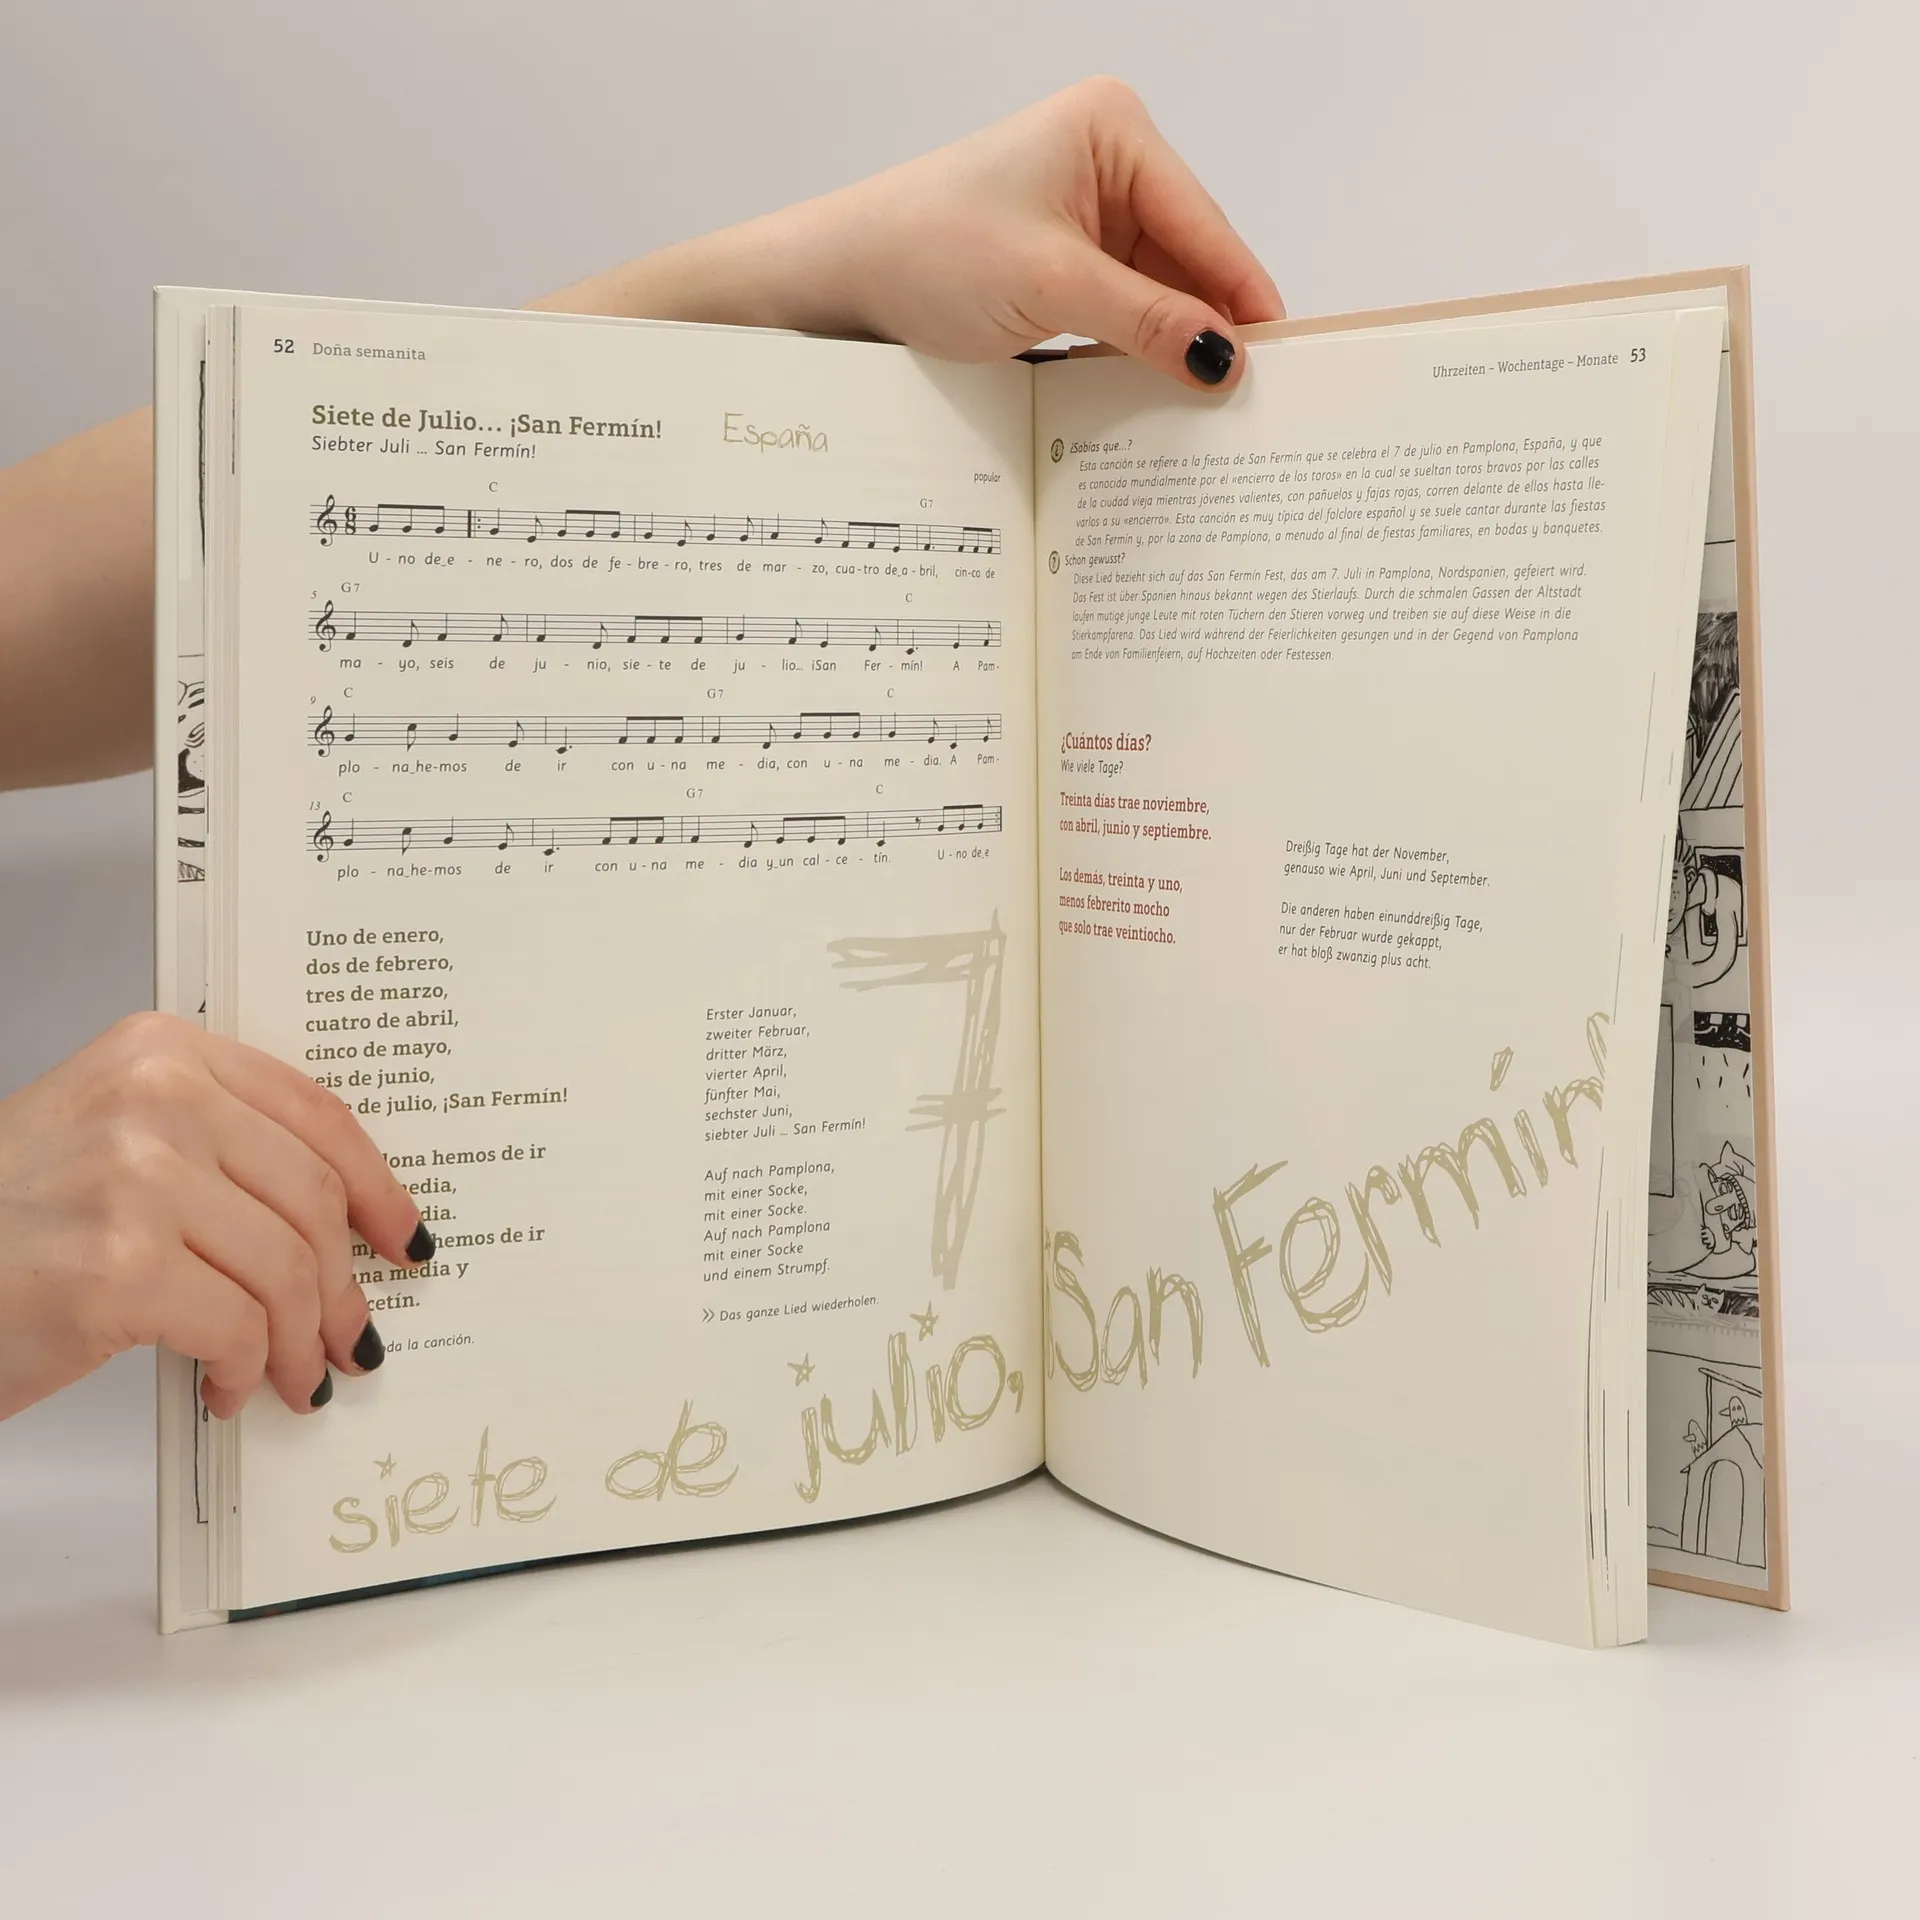 52 Doña semanita
Siete de Julio... ¡San Fermín!
Siebter Juli ... San Fermín!
España
popular
C G7
6 8
U - no de e - ne - ro, dos de fe - bre - ro, tres de mar - zo, cua - tro de a - bril, cin - co de
5 G7 C
ma - yo, seis de ju - nio, sie - te de ju - lio... ¡San Fer - mín! A Pam-
9 C G7 C
plo - na he-mos de ir con u - na me - dia, con u - na me - dia. A Pam-
13 C G7 C
plo - na he-mos de ir con u - na me - dia y un cal - ce - tín. U - no de e
Uno de enero,
dos de febrero,
tres de marzo,
cuatro de abril,
cinco de mayo,
eis de junio,
de julio, ¡San Fermín!
lona hemos de ir
edia,
dia.
mp hemos de ir
una media y
cetín.
da la canción.
Erster Januar,
zweiter Februar,
dritter März,
vierter April,
fünfter Mai,
sechster Juni,
siebter Juli ... San Fermín!
Auf nach Pamplona,
mit einer Socke,
mit einer Socke.
Auf nach Pamplona
mit einer Socke
und einem Strumpf.
>> Das ganze Lied wiederholen.
7
siete de julio, ¡San Fermín
Uhrzeiten – Wochentage – Monate 53
¿ ¿Sabías que...?
Esta canción se refiere a la fiesta de San Fermín que se celebra el 7 de julio en Pamplona, España, y que
es conocida mundialmente por el «encierro de los toros» en la cual se sueltan toros bravos por las calles
de la ciudad vieja mientras jóvenes valientes, con pañuelos y fajas rojas, corren delante de ellos hasta lle-
varlos a su «encierro». Esta canción es muy típica del folclore español y se suele cantar durante las fiestas
de San Fermín y, por la zona de Pamplona, a menudo al final de fiestas familiares, en bodas y banquetes.
? Schon gewusst?
Diese Lied bezieht sich auf das San Fermín Fest, das am 7. Juli in Pamplona, Nordspanien, gefeiert wird.
Das Fest ist über Spanien hinaus bekannt wegen des Stierlaufs. Durch die schmalen Gassen der Altstadt
laufen mutige junge Leute mit roten Tüchern den Stieren vorweg und treiben sie auf diese Weise in die
Stierkampfarena. Das Lied wird während der Feierlichkeiten gesungen und in der Gegend von Pamplona
am Ende von Familienfeiern, auf Hochzeiten oder Festessen.
¿Cuántos días?
Wie viele Tage?
Treinta días trae noviembre,
con abril, junio y septiembre.
Los demás, treinta y uno,
menos febrerito mocho
que solo trae veintiocho.
Dreißig Tage hat der November,
genauso wie April, Juni und September.
Die anderen haben einunddreißig Tage,
nur der Februar wurde gekappt,
er hat bloß zwanzig plus acht.